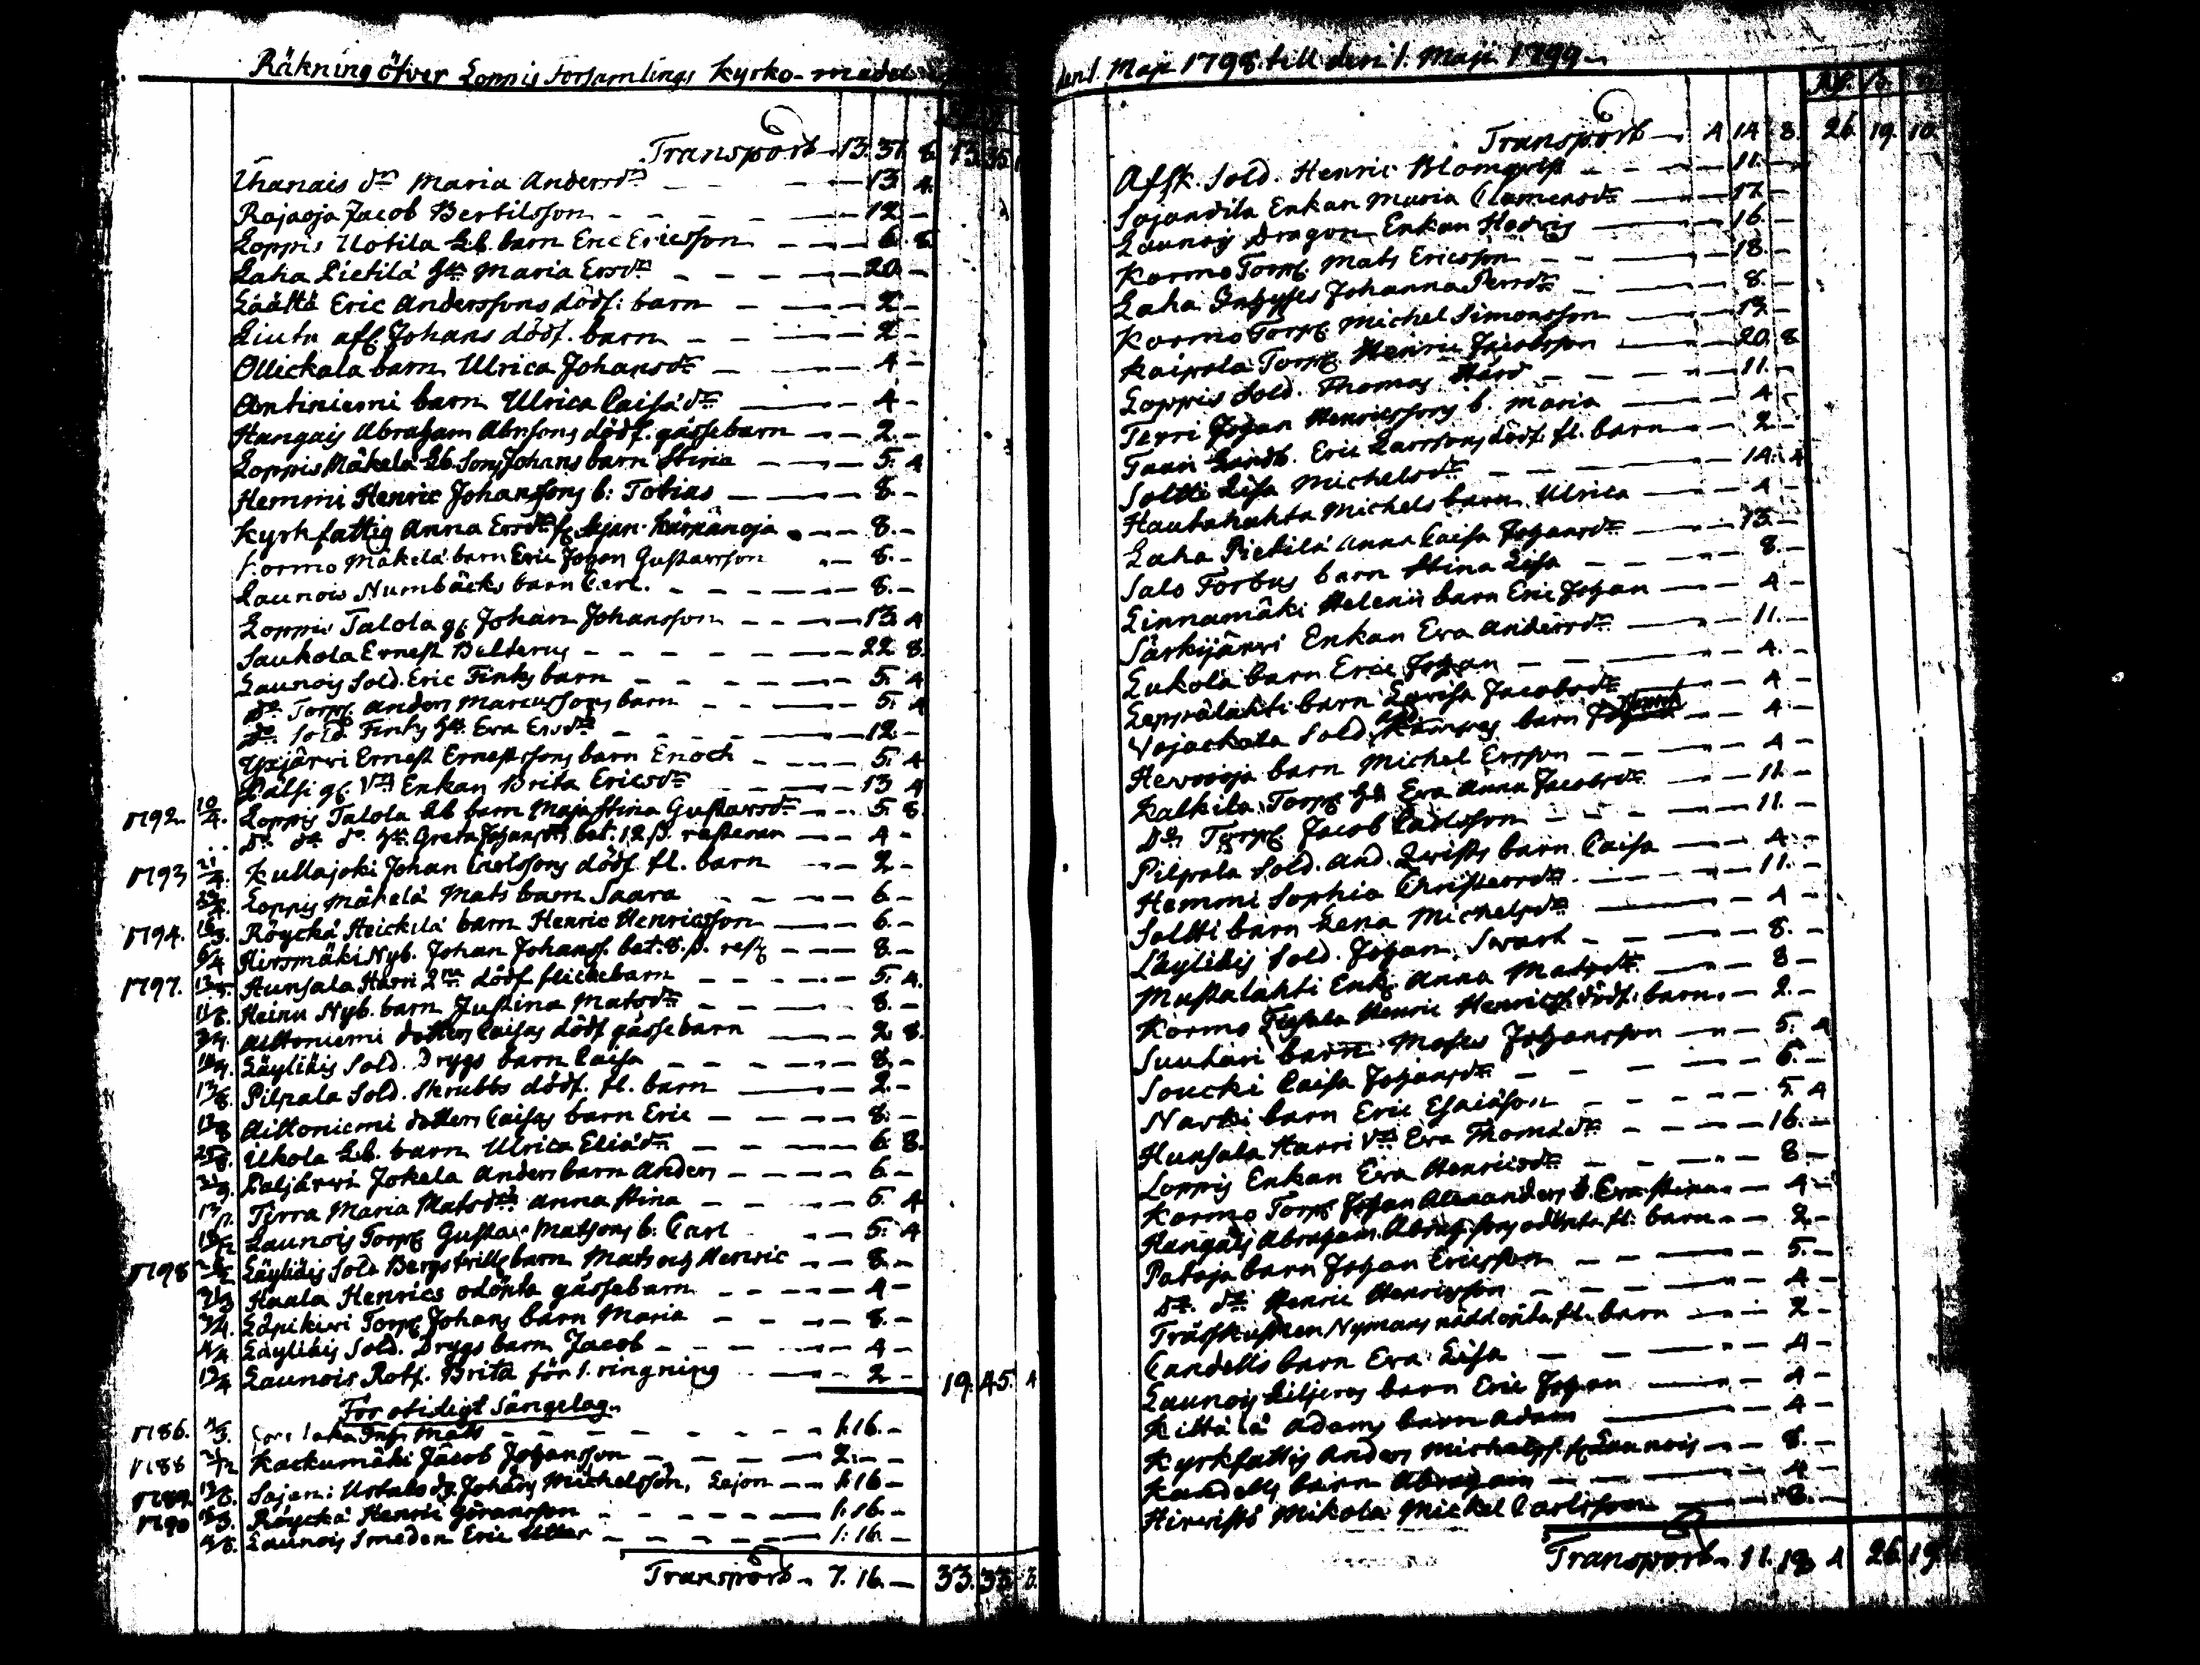 Räkning öfver Loppis Församlings Kyrko-medel
Transport 13. 37. 8. 13. 35.
Uhanais dr Maria Andersdr 13. 4.
Rajaoja Jacob Bertilsson 12 -
Loppis Uotila Lb. barn Eric Ericsson 6. 8.
Laha Pietilä Hu Maria Ersdr 20 -
Läältä Eric Anderssons dödf: barn 2 -
Liutu afl. Johans dödf. barn 2 -
Ollickala barn Ulrica Johansdr 4 -
Antiniemi barn Ulrica Caisädr 4 -
Hangais Abraham Abrsons dödf. gåssebarn 2. -
Loppis Mäkelä Lb. Sons Johans barn Stina 5. 4
Hemmi Henric Johanssons b: Tobias 8. -
Kyrkfattig Anna Ersdr fr. Sajan Kärpänoja 8. -
Kormo Mäkelä barn Eric Johan Gustavsson 8. -
Launois Numbäcks barn Carl. 8. -
Loppis Talola gl. Johan Johansson 13. 4
Saukola Ernest Belterus 22 8.
Launois Sold. Eric Finks barn 5. 4
do Torp. Anders Marcussons barn 5. 4
do Sold. Finks Hu Eva Ersdr 12 -
Yxjärvi Ernest Ernestssons barn Enoch 5. 4
Pälsi gl. Vd Enkan Brita Ericsdr 13 4
1792. 10/4. Loppis Talola Lb barn Maja Stina Gustavsdr 5. 8
do do do Hu Greta Johansdr bet. 12 β. resteran 4 -
1793 21/4. Kullajoki Johan Carlssons dödf. fl. barn 2 -
Loppis Mäkelä Mats barn Saara 6 -
1794. 16/3. Röyckä Heickilä barn Henric Henricsson 6. -
6/4 Hirsmäki Nyb. Johan Johanss. bet: 8. β. rest 8. -
1797. Hunsala Harri 2ne dödf flickebarn 5. 4.
11/8. Heinu Nyb. barn Justina Matsdr 8. -
Aittoniemi dotters Caisas dödf gåssebarn 2 8.
Läyliäis Sold. Drygs barn Caisa 8. -
13/8. Pilpala Sold. Skrubbs dödf. fl. barn 2. -
13/8 Aittoniemi dotters Caisas barn Eric 8. -
25/8. Ilkola Lb. barn Ulrica Eliädr 6 8.
Paljärvi Jokela Anders barn Anders 6 -
Tirra Maria Matsdrs Anna Stina 5. 4
Launois Torp. Gustav Matsons b: Carl 5. 4
1798 Läyliäis Sold Bergstrills barn Mats och Henric 8 -
Haala Henrics odöpta gåssebarn 4 -
Läpikivi Torp. Johans barn Maria 8. -
4/4 Läyliäis Sold. Drygs barn Jacob 4 -
13/4 Launois Rotf. Brita för 1. ringning 2 - 19. 45. 4
För otidigt Sängelag.
1786. 4/3. Mats 1: 16. -
1788 Kackumäki Jacob Johansson 2. -
Sajan: Ustalo dg. Johans Michelsson, Lejon 1: 16 -
1790 Röyckä Henric Göransson 1: 16. -
Launois Smeden Eric 1: 16. -
Transport 7. 16. - 33. 33. 3.
den 1. Maji 1798. till den 1. Maji 1799
Transport 4 14 8. 26. 19. 10.
Afsk. Sold. Henric Blomqvist 11. -
Sajandila Enkan Maria Clemensdr 17 -
Launois Dragon Enkan Hedvig 16. -
Kormo Torp. Mats Ericsson 18. -
Laha Inhyses Johanna Persdr 8. -
Kormo Torp. Michel Simonsson 17 -
Kaipala Torp. Henric Jacobsson 20. 8
Loppis Sold. Thomas Hård 11. -
Terri Johan Henricssons b. Maria 4 -
Taan Landb. Eric Larssons dödf. fl. barn 2 -
Soltti Lisa Michelsdr 14. 4
Hautahuhta Michels barn Ulrica 4 -
Laha Pietilä Anna Caisa Johansdr 13 -
Salo Forbus barn Stina Lisa 8. -
Linnamäki Helenii barn Eric Johan 4 -
Särkijärvi Enkan Eva Andersdr 11. -
Lukola barn Eric Johan 4. -
Leppälahti barn Lovisa Jacobsdr 4 -
Vojackala Sold. Kämpes barn Henric 4 -
Hevooja barn Michel Ersson 4 -
Kalkila Torp. Hu Eva Anna Jacobsdr 11 -
do Torp. Jacob Carlsson 11. -
Pilpala Sold. And. Qvists barn Caisa 4. -
Hemmi Sophia Christersdr 11. -
Soltti barn Lena Michelsdr 4 -
Läyliäis Sold. Johan Svart 8. -
Mustalahti Enk. Anna Matsdr 8 -
Kormo Henric Henricss. dödf. barn 2. -
Suutari barn Moses Johansson 5. 4
Soucki Caisa Johansdr 6. -
Narki barn Eric Esaiäson 5. 4
Hunsala Harri Vd Eva Thomädr 16. -
Loppis Enkan Eva Henricsdr 8 -
Kormo Torp. Johan Alexanders b. Eva Stina 4 -
Hangais Abraham Abrah:sons odöpta fl: barn 2 -
Pataja barn Johan Ericsson 5. -
do do Henric Henricsson 4 -
Träskusken Nymans nöddöpta fl. barn 2 -
Candells barn Eva Lisa 4 -
Launois Liljeros barn Eric Johan 4 -
Kittälä Adams barn Adam 4 -
Kyrkfattig Anders Michelss. fr. Launois 8. -
Kandells barn Abraham 4 -
Hirvistö Mikola Michel Carlsson 8. -
Transport 11. 19 4 26. 19.